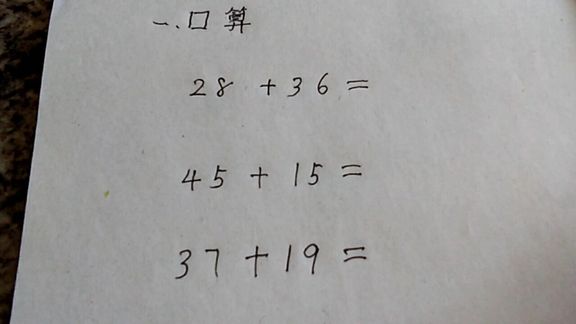 一.口算
28+36=
45+15=
37+19=